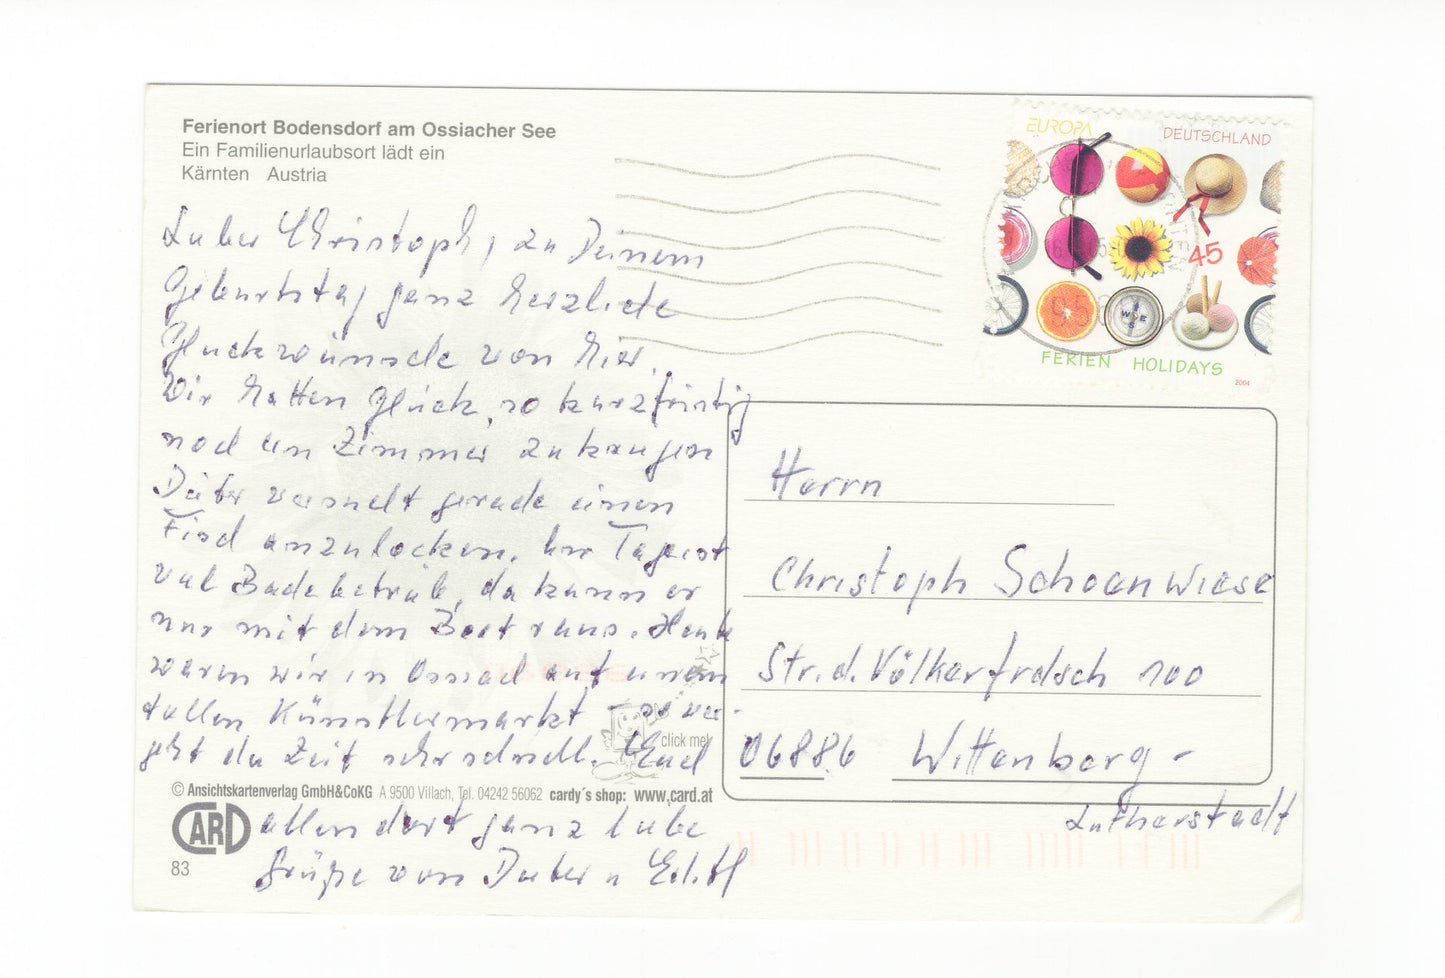 Ferienort Bodensdorf am Ossiacher See
Ein Familienurlaubsort lädt ein
Kärnten Austria
Lieber Christoph, zu Deinem
Geburtstag ganz herzliche
Glückwünsche von hier.
Wir hatten Glück, so kurzfristig
noch ein Zimmer zu kriegen
Dieter versucht gerade einen
Fisch anzulocken. Am Tage ist
viel Badebetrieb, da kann er
nur mit dem Boot raus. Heute
waren wir in Ossiach auf einem
tollen Künstlermarkt - so ver-
geht die Zeit sehr schnell. Euch
allen dort ganz liebe
Grüße von Dieter u Edith
click me!
© Ansichtskartenverlag GmbH&CoKG A 9500 Villach, Tel. 04242 56062 cardy´s shop: www.card.at
CARD
83
EUROPA
DEUTSCHLAND
45
W E
S
FERIEN HOLIDAYS
2004
Herrn
Christoph Schoenwiese
Str. d. Völkerfrdsch 100
06886 Wittenberg -
Lutherstadt